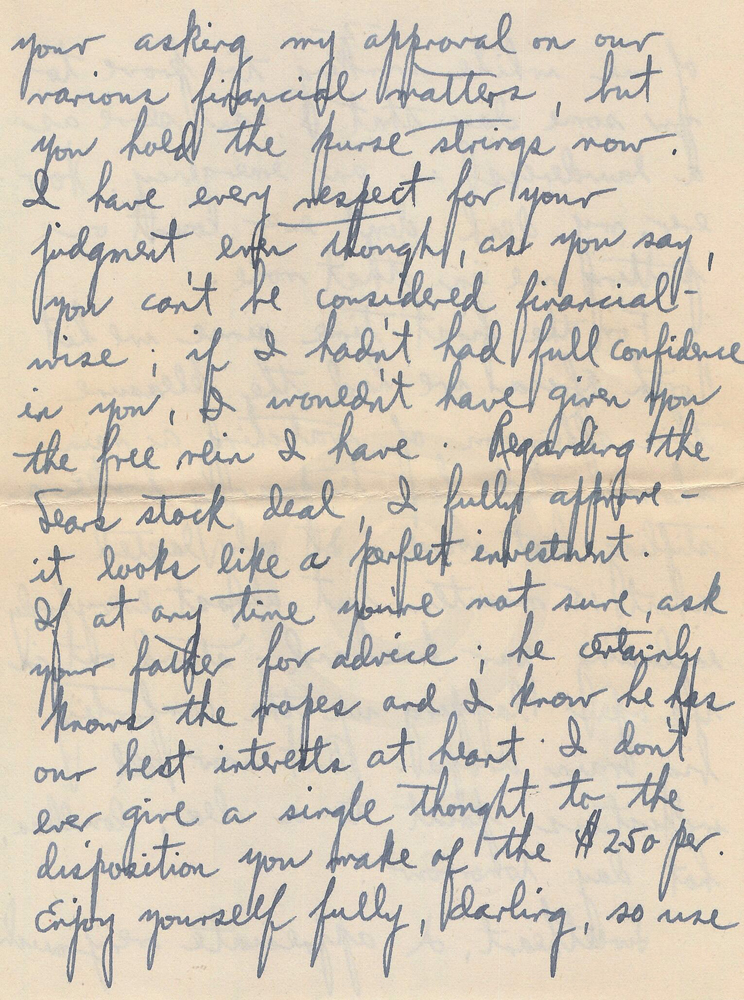 your asking my approval on our
various financial matters, but
you hold the purse strings now.
I have every respect for your
judgment, even though, as you say,
you can't be considered financial-
wise; if I hadn't had full confidence
in you, I wouldn't have given you
the free rein I have. Regarding the
Sears stock deal, I fully approve -
it looks like a perfect investment.
If at any time you're not sure, ask
your father for advice; he certainly
knows the ropes and I know he has
our best interests at heart. I don't
ever give a single thought to the
disposition you make of the $250 per.
Enjoy yourself fully, darling, so use